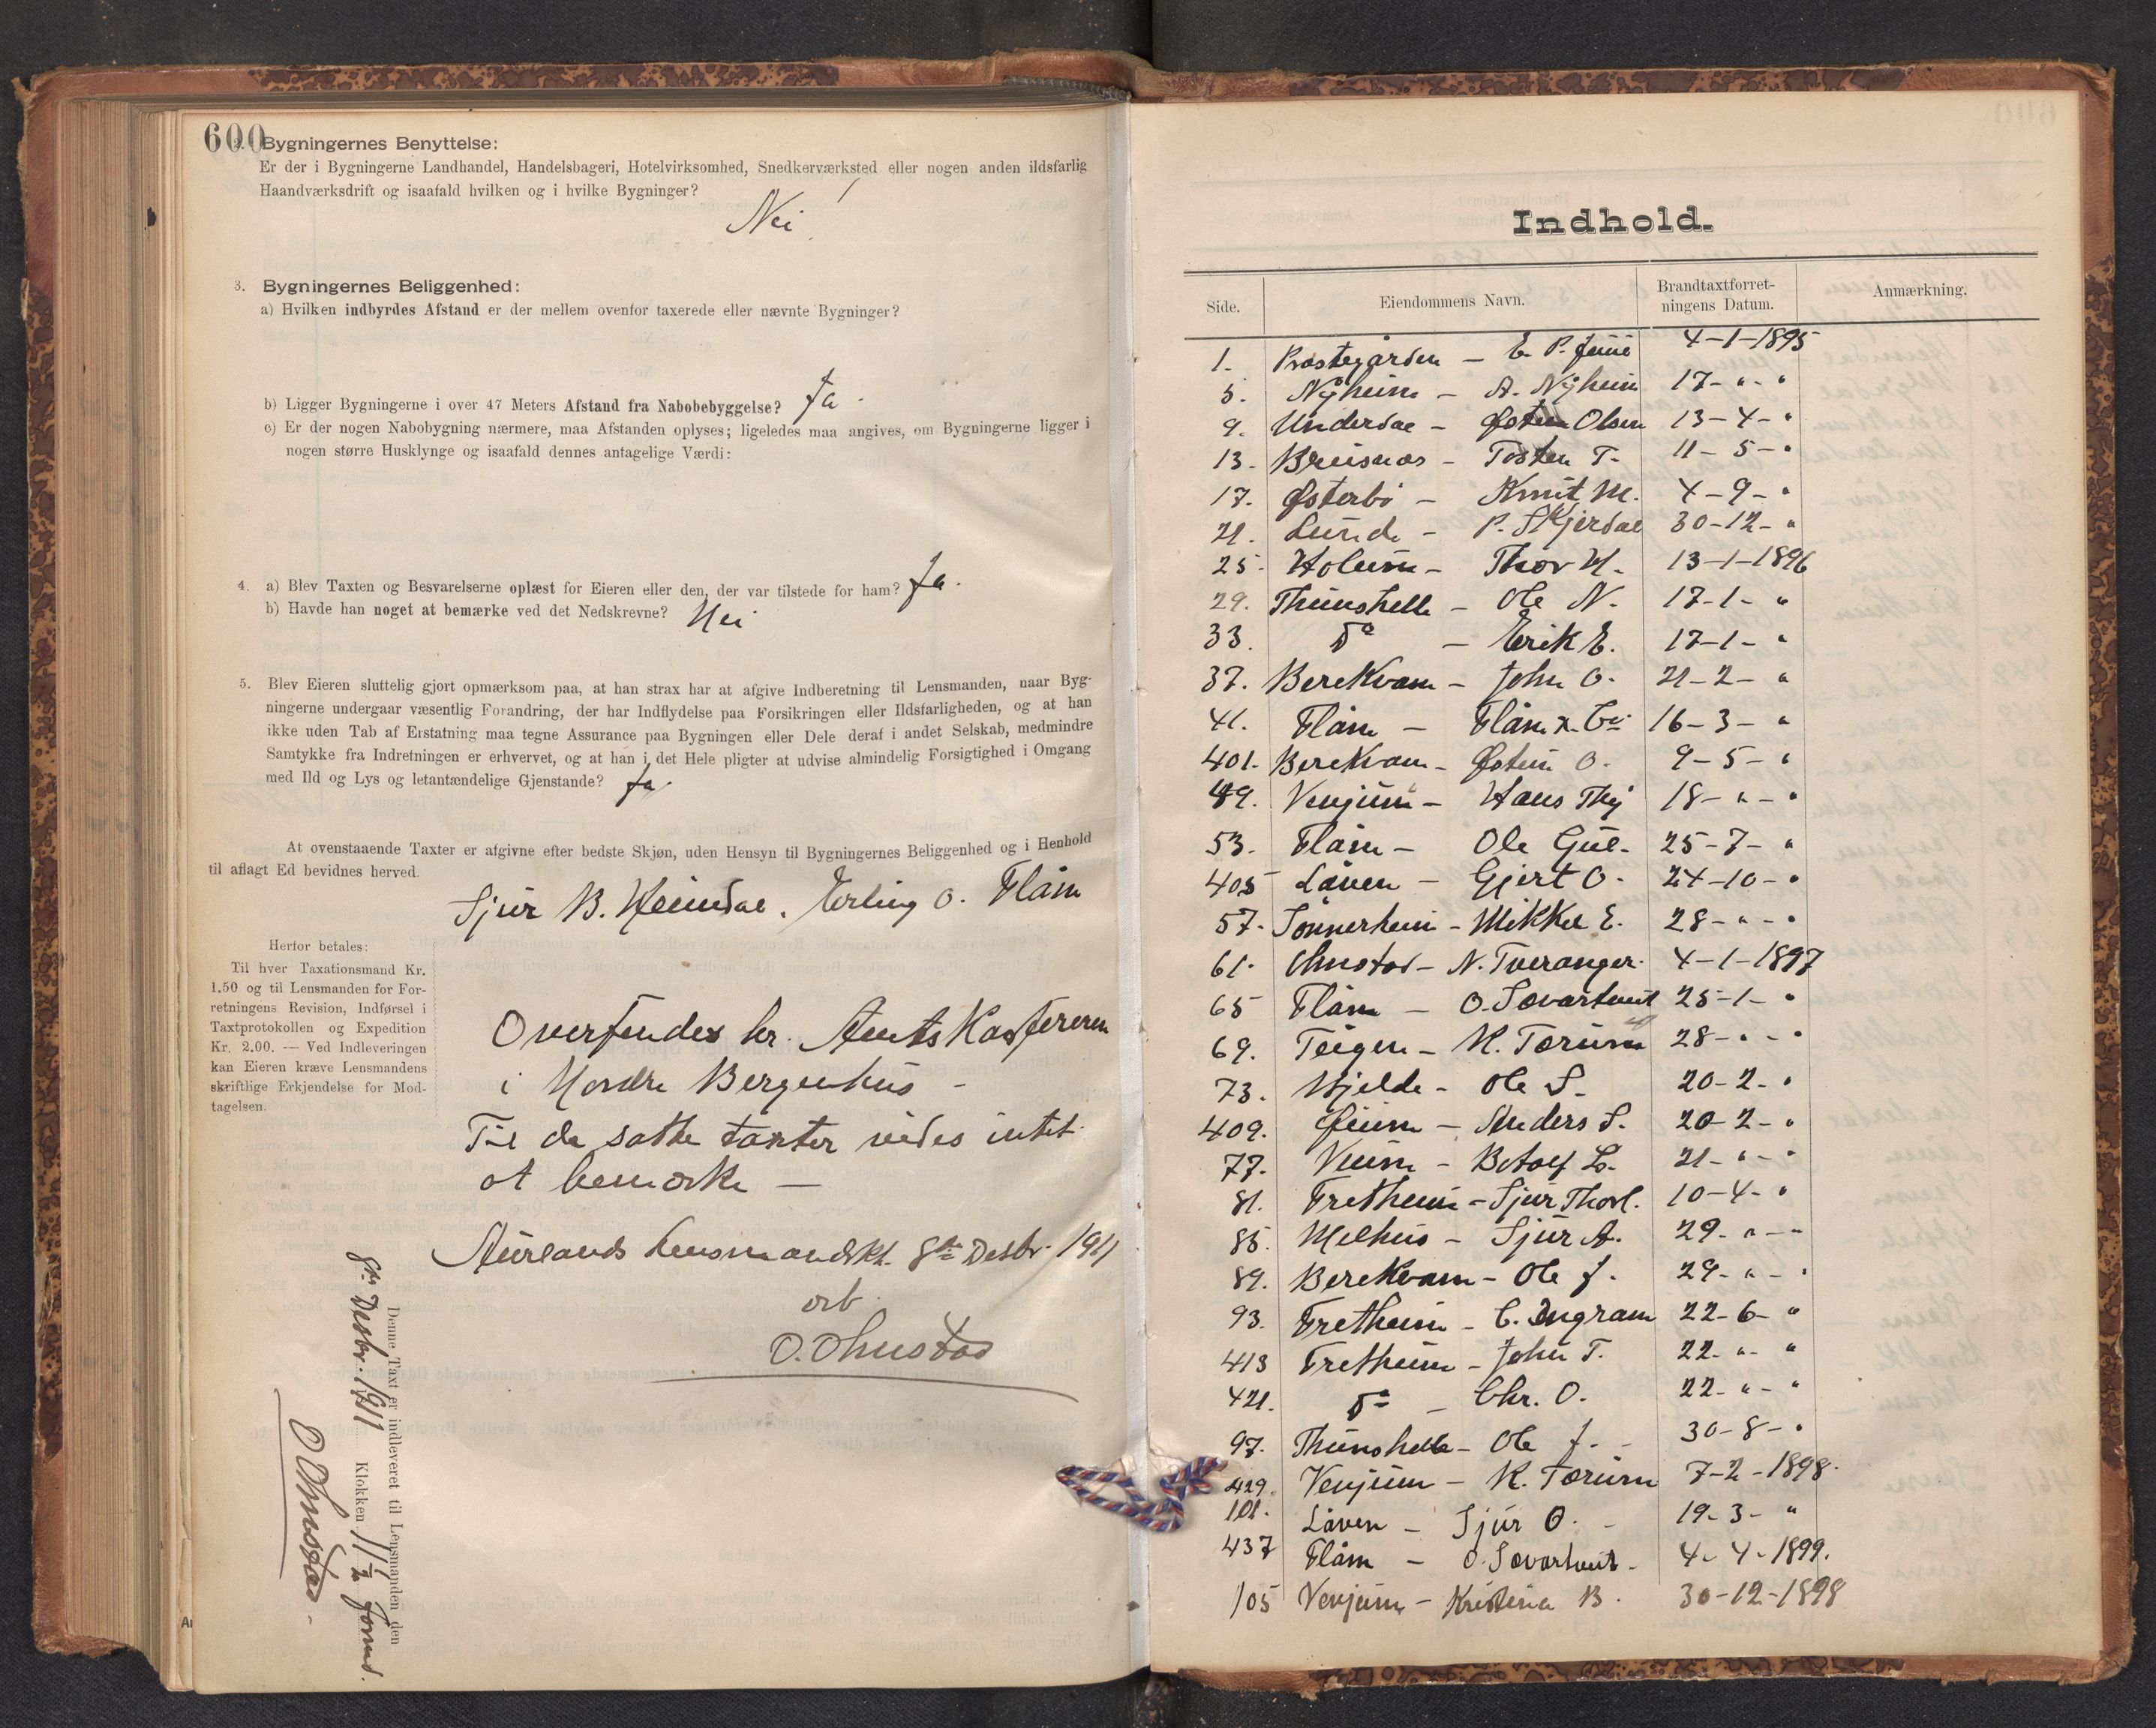 600
2. Bygningernes Benyttelse:
Er der i Bygningerne Landhandel, Handelsbageri, Hotelvirksomhed, Snedkerværksted eller nogen anden ildsfarlig
Haandværksdrift og isaafald hvilken og i hvilke Bygninger?
Nei!
3. Bygningernes Beliggenhed:
a) Hvilken indbyrdes Afstand er der mellem ovenfor taxerede eller nævnte Bygninger?
b) Ligger Bygningerne i over 47 Meters Afstand fra Nabobebyggelse? Ja.
c) Er der nogen Nabobygning nærmere, maa Afstanden oplyses; ligeledes maa angives, om Bygningerne ligger i
nogen større Husklynge og isaafald dennes antagelige Værdi:
4. a) Blev Taxten og Besvarelserne oplæst for Eieren eller den, der var tilstede for ham? Ja.
b) Havde han noget at bemærke ved det Nedskrevne? Nei
5. Blev Eieren sluttelig gjort opmærksom paa, at han strax har at afgive Indberetning til Lensmanden, naar Byg-
ningerne undergaar væsentlig Forandring, der har Indflydelse paa Forsikringen eller Ildsfarligheden, og at han
ikke uden Tab af Erstatning maa tegne Assurance paa Bygningen eller Dele deraf i andet Selskab, medmindre
Samtykke fra Indretningen er erhvervet, og at han i det Hele pligter at udvise almindelig Forsigtighed i Omgang
med Ild og Lys og letantændelige Gjenstande? Ja.
At ovenstaaende Taxter er afgivne efter bedste Skjøn, uden Hensyn til Bygningernes Beliggenhed og i Henhold
til aflagt Ed bevidnes herved.
Sjur B. Heimdal. Erling O. Flåm
Herfor betales:
Til hver Taxationsmand Kr.
1.50 og til Lensmanden for For-
retningens Revision, Indførsel i
Taxtprotokollen og Expedition
Kr. 2.00. — Ved Indleveringen
kan Eieren kræve Lensmandens
skriftlige Erkjendelse for Mod-
tagelsen.
Oversendes hr. Amts Kassereren
i Nordre Bergenhus -
Til de satte taxter vides intet
at bemærke —
Aurlands Lensmandskt. 8de Desbr. 1911
arb.
O. Ohnstad
Denne Taxt er indleveret til Lensmanden den
8de Desbr. 1911 Klokken 11 1/2 formd.
O Ohnstad -
Indhold.
Side. Eiendommens Navn. Brandtaxtforret-
ningens Datum. Anmærkning.
1. Prostegården — E. P. Juul 4-1-1895
5. Nyheim — A. Nyheim 17- " - "
9. Underdal - Østein Olsen 13-4- "
13. Breisnæs - Tosten T. 11-5- "
17. Østerbø — Knut M. 4-9- "
21. Lunde - P. Skjerdal 30-12- "
25. Holum - Thor H. 13-1-1896
29. Thunshelle - Ole N. 17-1- "
33. Do — Erik E. 17-1- "
37. Berekvam - John O. 21-2- "
41. Flåm — Flåm & Co 16-3- "
401. Berekvam - Østein O. 9-5- "
49. Venjum - Hans Thj 18- " - "
53. Flåm - Ole Gul. 25-7- "
405 Låven - Gjert O. 24-10- "
57. Sønnerheim - Mikkel E. 28- " - "
61. Ohnstad - N. Tveranger. 4-1-1897
65 Flåm — O. Svartveit 25-1- "
69. Teigen - K. Torum 28- " - "
73. Hjelde - Ole S. 20-2- "
409. Øium - Anders S. 20-2- "
77. Vium - Botolf L. 21- " - "
81. Fretheim - Sjur Thorl. 10-4- "
85. Melhus - Sjur A. 29- " - "
89. Berekvam - Ole J. 29- " - "
93. Fretheim - C. Ingram 22-6- "
413 Fretheim - John T. 22- " - "
421. Do - Chr. O. 22- " - "
97. Thunshelle - Ole J. - 30-8- "
429. Venjum - K. Torum 7-2-1898.
101. Låven - Sjur O. - 19-3- "
437 Flåm - O. Svartveit - 4-4-1899.
105 Venjum - Kristina B. 30-12-1898